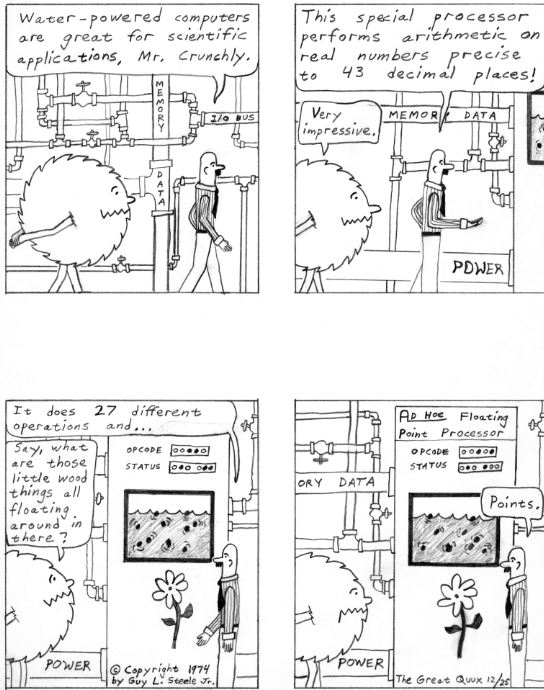 Water-powered computers
are great for scientific
applications, Mr. Crunchly.
MEMORY
DATA
I/O BUS
This special processor
performs arithmetic on
real numbers precise
to 43 decimal places!
Very
impressive.
MEMORY DATA
POWER
It does 27 different
operations and...
Say, what
are those
little wood
things all
floating
around in
there?
OPCODE
STATUS
POWER
© Copyright 1974
by Guy L. Steele Jr.
AD HOC Floating
Point Processor
OPCODE
STATUS
ORY DATA
Points.
POWER
The Great Quux 12/25